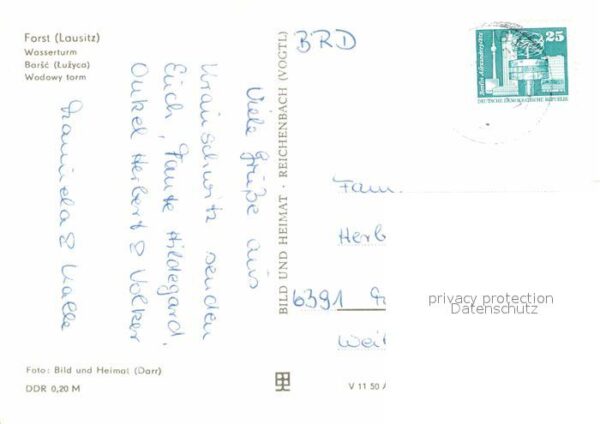 Forst (Lausitz)
Wasserturm
Baršć (Łužyca)
Wodowy torm
Viele Grüße aus
Krauschwitz senden
Euch, Tante Hildegard,
Onkel Herbert & Volker
Manuela & Kalle
Foto: Bild und Heimat (Darr)
DDR 0,20 M
BILD UND HEIMAT · REICHENBACH (VOGTL)
V 11 50 A
BRD
Berlin, Alexanderplatz
25
DEUTSCHE DEMOKRATISCHE REPUBLIK
Fam.
Herb
6391
Weil
privacy protection
Datenschutz